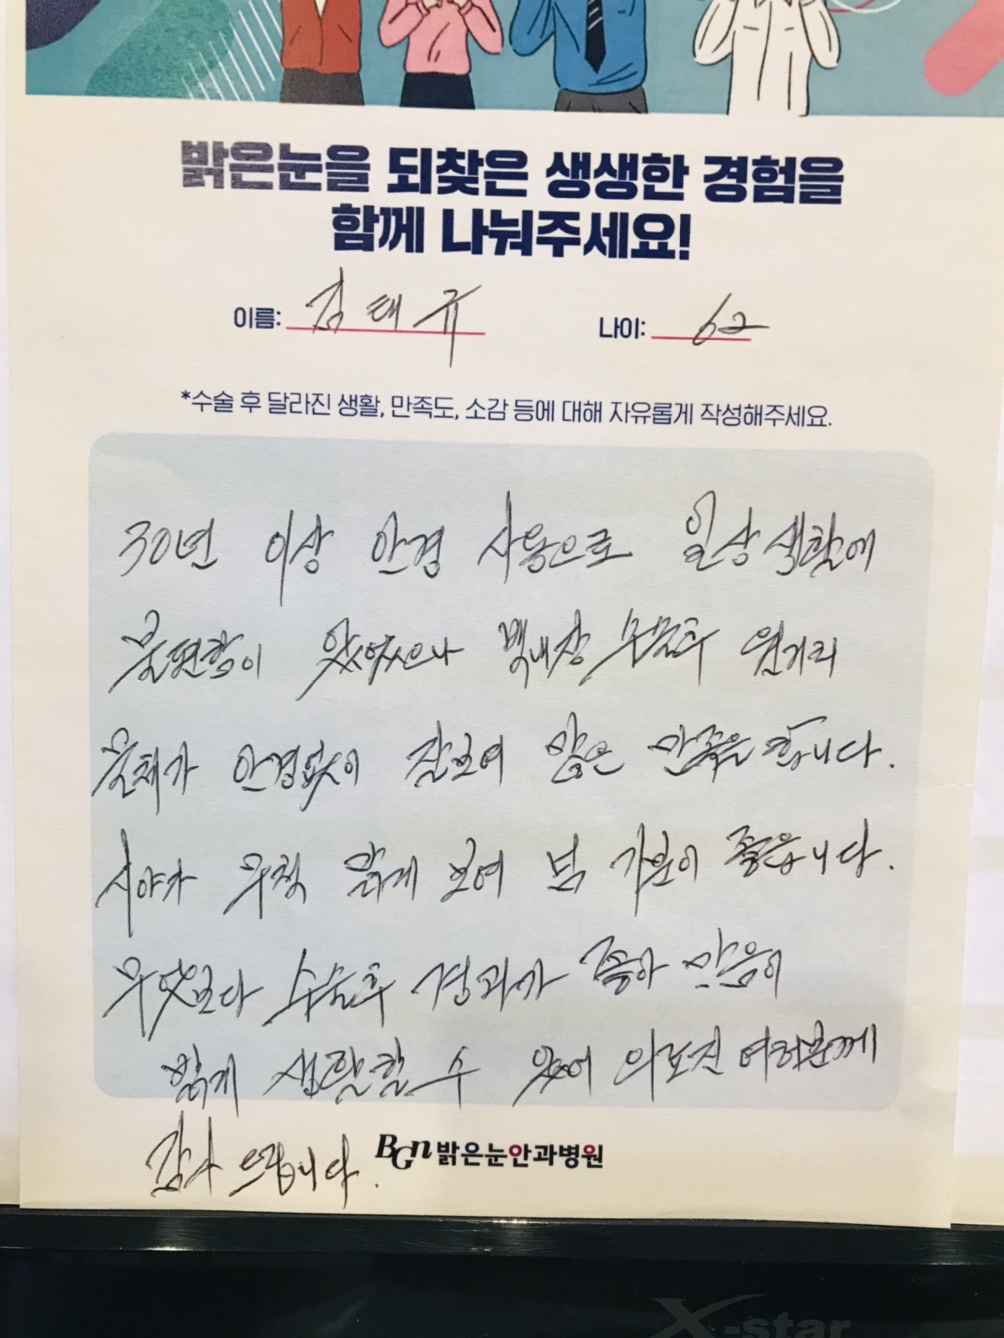 밝은눈을 되찾은 생생한 경험을
함께 나눠주세요!
이름: 김태규 나이: 62
*수술 후 달라진 생활, 만족도, 소감 등에 대해 자유롭게 작성해주세요.
30년 이상 안경 사용으로 일상생활에
불편함이 있었으나 백내장 수술후 원거리
물체가 안경없이 잘보여 많은 만족을 합니다.
시야가 무척 맑게 보여 넘 기분이 좋읍니다.
무엇보다 수술후 경과가 좋아 마음이
밝게 생활할 수 있어 의료진 여러분께
감사 드립니다.
BGN 밝은눈안과병원
X-star